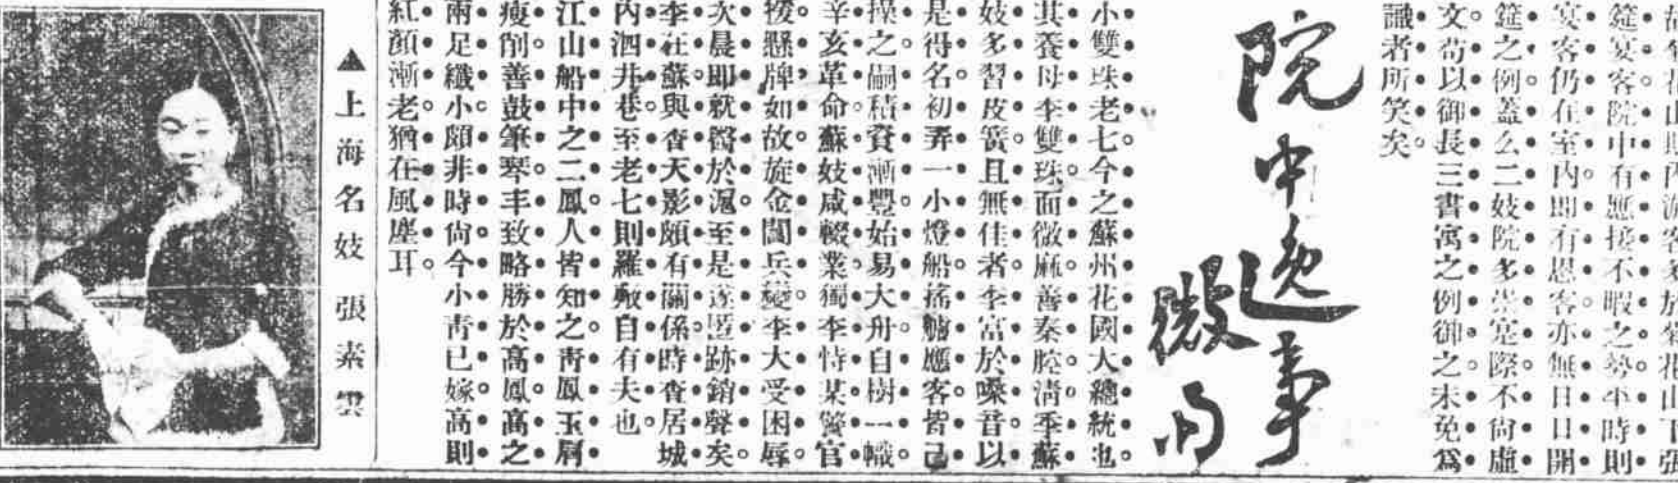 筵宴客。院中有應接不暇之勢。平時則
宴客仍在室內。即有恩客。亦無日日開
筵之例。蓋么二妓院。多崇實際。不尙虛
文。苟以御長三書寓之例御之。未免爲
識者所笑矣。
院中逸事
微雨
小雙珠老七。今之蘇州花國大總統也。
其養母李雙珠。面微麻。善秦腔。淸季蘇
妓多習皮簧。且無佳者。李富於嗓音。以
是得名。初弄一小燈船。搖艣應客。皆己
操之。嗣積資漸豐。始易大舟。自樹一幟。
辛亥革命。蘇妓咸輟業。獨李恃某警官
援。懸牌如故。旋金閶兵變。李大受困辱。
次晨卽就醫於滬。至是遂匿跡銷聲矣。
李在蘇與查天影頗有關係。時查居城
內泗井巷。至老七則羅敷自有夫也。
江山船中之二鳳。人皆知之。靑鳳玉屑
瘦削。善鼓箏琴。丰致略勝於高鳳。高之
兩足纖小。頗非時尙。今小靑已嫁。高則
紅顏漸老。猶在風塵耳。
▲上海名妓 張素雲